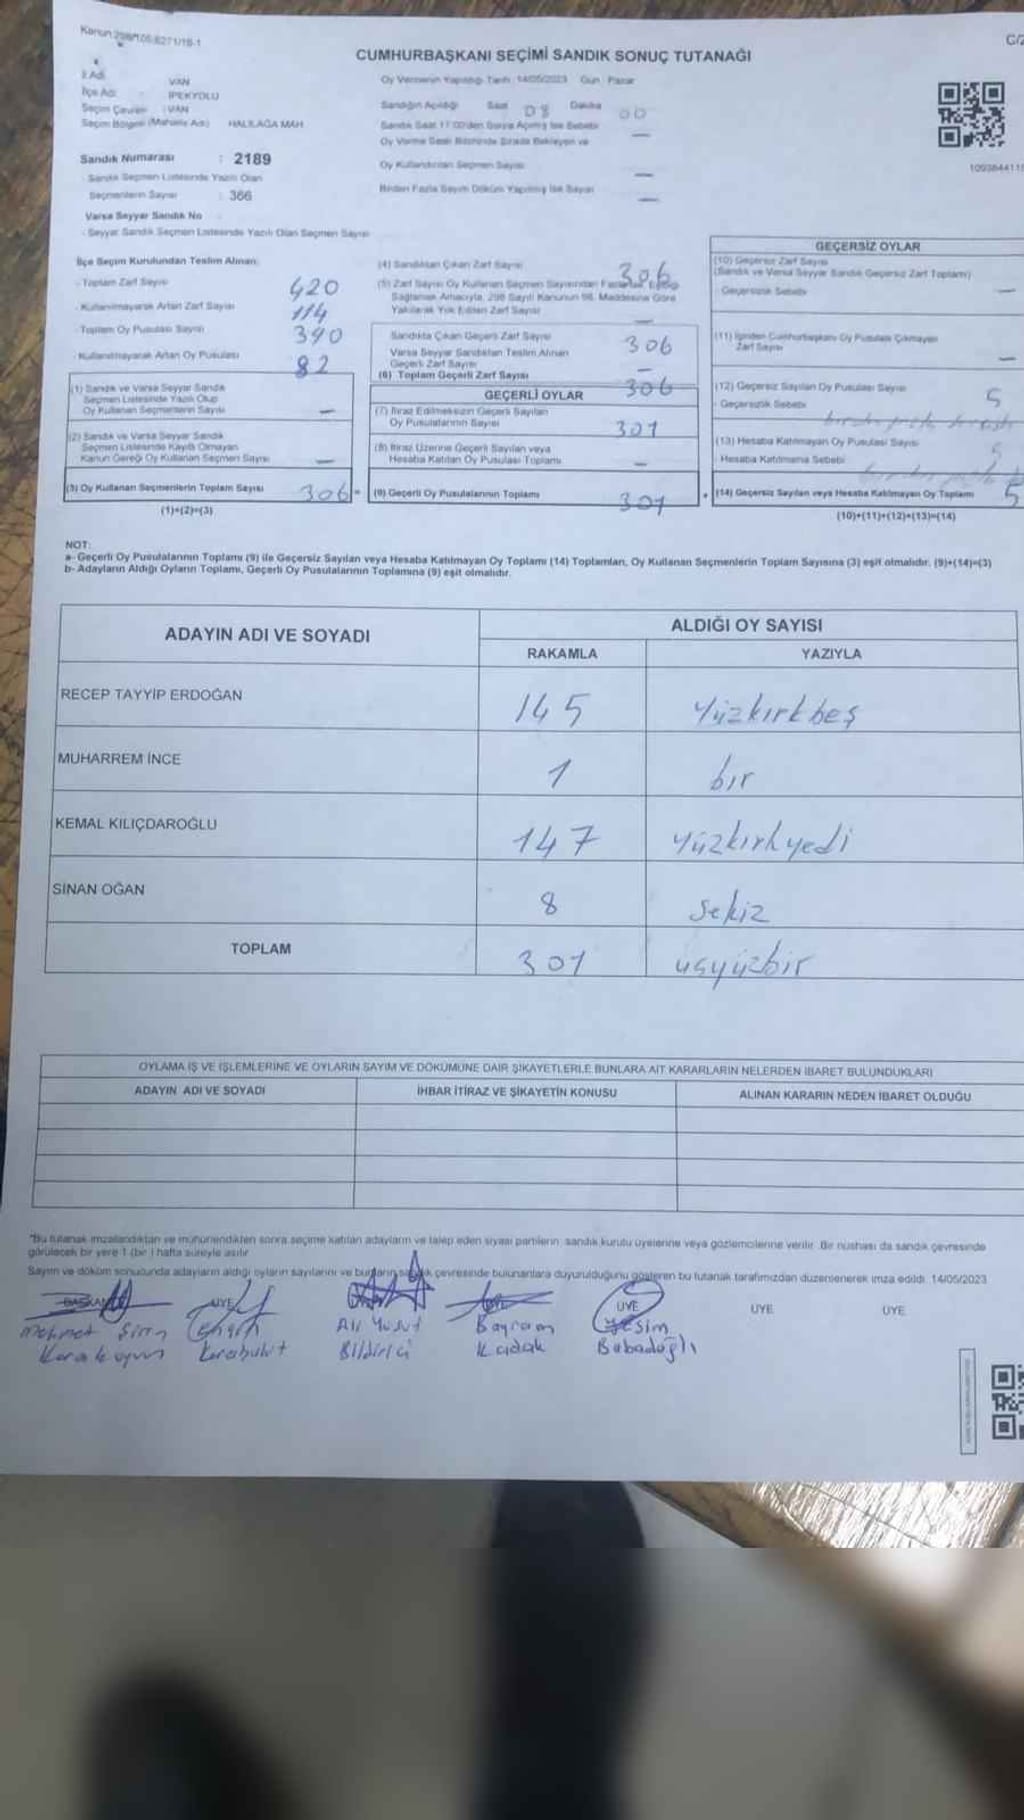 CUMHURBAŞKANI SEÇİMİ SANDIK SONUÇ TUTANAĞI
İl Adı VAN
İlçe Adı : İPEKYOLU
Seçim Çevresi : VAN
Seçim Bölgesi (Mahalle Adı) HALİLAĞA MAH
Sandık Numarası : 2189
Sandık Seçmen Listesinde Yazılı Olan
Seçmenlerin Sayısı : 366
Varsa Seyyar Sandık No
- Seyyar Sandık Seçmen Listesinde Yazılı Olan Seçmen Sayısı
Oy Vermenin Yapıldığı Tarih : 14/05/2023 Gün : Pazar
Sandığın Açıldığı Saat 08 Dakika 00
Sandık Saat 17:00'den Sonra Açılmış İse Sebebi —
Oy Verme Saati Bitiminde Sırada Bekleyen ve
Oy Kullandırılan Seçmen Sayısı —
Birden Fazla Sayım Döküm Yapılmış İse Sayısı —
İlçe Seçim Kurulundan Teslim Alınan:
- Toplam Zarf Sayısı 420
- Kullanılmayarak Artan Zarf Sayısı 114
- Toplam Oy Pusulası Sayısı 390
- Kullanılmayarak Artan Oy Pusulası 82
(1) Sandık ve Varsa Seyyar Sandık
Seçmen Listesinde Yazılı Olup
Oy Kullanan Seçmenlerin Sayısı —
(2) Sandık ve Varsa Seyyar Sandık
Seçmen Listesinde Kayıtlı Olmayan
Kanun Gereği Oy Kullanan Seçmen Sayısı —
(3) Oy Kullanan Seçmenlerin Toplam Sayısı 306 =
(1)+(2)=(3)
(4) Sandıktan Çıkan Zarf Sayısı 306
(5) Zarf Sayısı Oy Kullanan Seçmen Sayısından Fazla ise, Eşitliği
Sağlamak Amacıyla, 298 Sayılı Kanunun 98. Maddesine Göre
Yakılarak Yok Edilen Zarf Sayısı —
Sandıkta Çıkan Geçerli Zarf Sayısı 306
Varsa Seyyar Sandıktan Teslim Alınan
Geçerli Zarf Sayısı —
(6) Toplam Geçerli Zarf Sayısı 306
GEÇERLİ OYLAR
(7) İtiraz Edilmeksizin Geçerli Sayılan
Oy Pusulalarının Sayısı 301
(8) İtiraz Üzerine Geçerli Sayılan veya
Hesaba Katılan Oy Pusulası Toplamı —
(9) Geçerli Oy Pusulalarının Toplamı 301 +
GEÇERSİZ OYLAR
(10) Geçersiz Zarf Sayısı
(Sandık ve Varsa Seyyar Sandık Geçersiz Zarf Toplamı)
- Geçersizlik Sebebi —
(11) İçinden Cumhurbaşkanı Oy Pusulası Çıkmayan
Zarf Sayısı —
(12) Geçersiz Sayılan Oy Pusulası Sayısı 5
- Geçersizlik Sebebi
(13) Hesaba Katılmayan Oy Pusulası Sayısı 5
Hesaba Katılmama Sebebi
(14) Geçersiz Sayılan veya Hesaba Katılmayan Oy Toplamı 5
(10)+(11)+(12)+(13)=(14)
NOT:
a- Geçerli Oy Pusulalarının Toplamı (9) ile Geçersiz Sayılan veya Hesaba Katılmayan Oy Toplamı (14) Toplamları, Oy Kullanan Seçmenlerin Toplam Sayısına (3) eşit olmalıdır. (9)+(14)=(3)
b- Adayların Aldığı Oyların Toplamı, Geçerli Oy Pusulalarının Toplamına (9) eşit olmalıdır.
ADAYIN ADI VE SOYADI ALDIĞI OY SAYISI
RAKAMLA YAZIYLA
RECEP TAYYİP ERDOĞAN 145 Yüzkırkbeş
MUHARREM İNCE 1 bir
KEMAL KILIÇDAROĞLU 147 yüzkırkyedi
SİNAN OĞAN 8 sekiz
TOPLAM 301 üçyüzbir
OYLAMA İŞ VE İŞLEMLERİNE VE OYLARIN SAYIM VE DÖKÜMÜNE DAİR ŞİKAYETLERLE BUNLARA AİT KARARLARIN NELERDEN İBARET BULUNDUKLARI
ADAYIN ADI VE SOYADI İHBAR İTİRAZ VE ŞİKAYETİN KONUSU ALINAN KARARIN NEDEN İBARET OLDUĞU
*Bu tutanak imzalandıktan ve mühürlendikten sonra seçime katılan adayların ve talep eden siyasi partilerin, sandık kurulu üyelerine veya gözlemcilerine verilir. Bir nüshası da sandık çevresinde
görülecek bir yere 1 (bir ) hafta süreyle asılır.
Sayım ve döküm sonucunda adayların aldığı oyların sayılarını ve bunların sandık çevresinde bulunanlara duyurulduğunu gösteren bu tutanak tarafımızdan düzenlenerek imza edildi. 14/05/2023
BAŞKAN ÜYE ÜYE ÜYE ÜYE
Mehmet Şirin Engin Ali Yusuf Bayram Yeşim
Karakoyun Karabulut Bildirici Kadak Babadoğlı